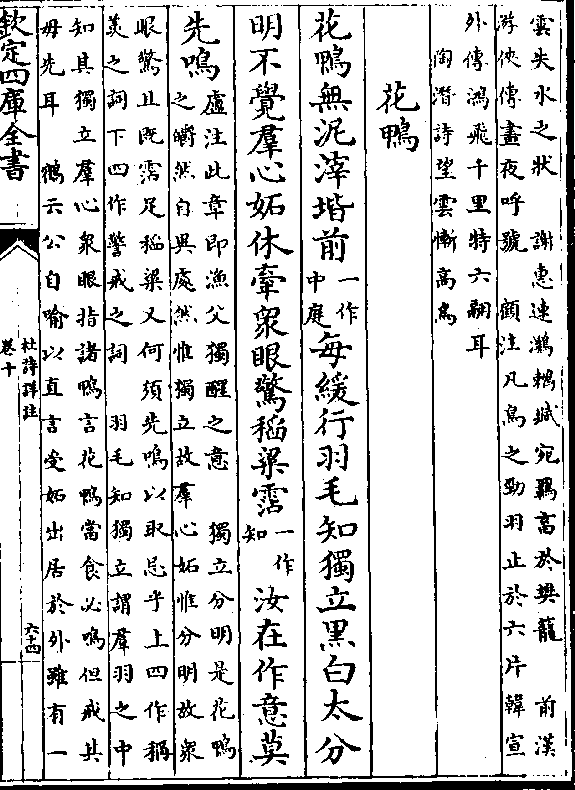 雲失水之狀　謝惠連鸂鶒賦宛羈畜於樊籠　前漢
游俠傳晝夜呼號　顧注凡鳥之勁羽止於六片韓宣
外傳鴻飛千里特六翮耳
陶潛詩望雲慚高鳥
花鴨
花鴨無泥滓堦前一作中庭每緩行羽毛知獨立黑白太分
明不覺羣心妬休牽衆眼驚稻粱霑一作知汝在作意莫
先鳴盧注此章即漁父獨醒之意　獨立分明是花鴨
之皭然自異處然惟獨立故羣心妬惟分明故衆
眼驚且既霑足稻粱又何須先鳴以取忌乎上四作稱
美之詞下四作警戒之詞　羽毛知獨立謂羣羽之中
知其獨立羣心衆眼指諸鴨言花鴨當食必鳴但戒其
毋先耳　鶴云公自喻以直言受妬出居於外雖有一
欽定四庫全書
杜詩詳註
卷十
六十四